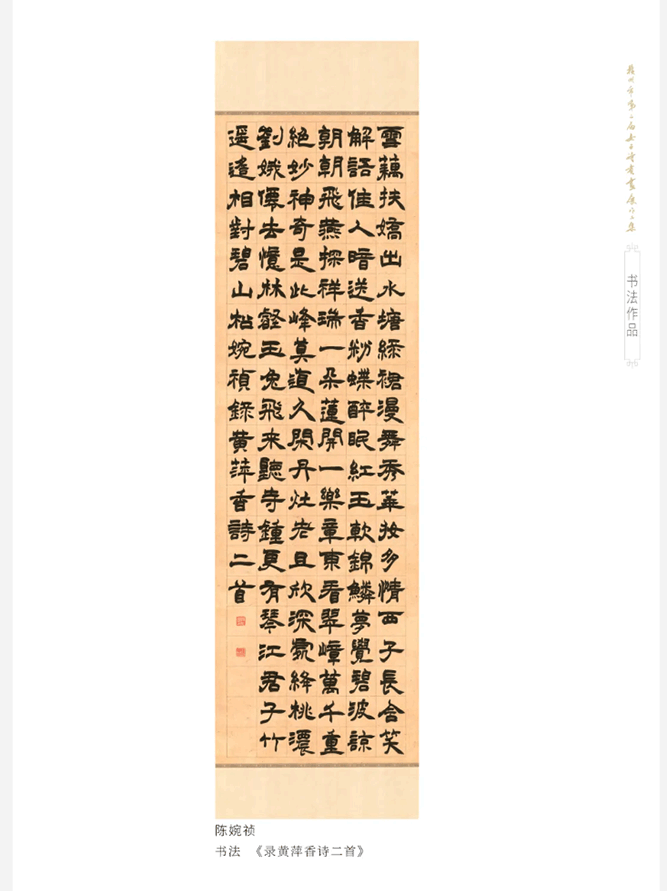 雲藕扶嬌出水塘綠裙漫舞秀華妝多情西子長含笑
解語佳人暗送香粉蝶醉眠紅玉軟錦鱗夢覺碧波諒
朝朝飛燕探祥瑞一朵蓮開一樂章東看翠嶂萬千重
絕妙神奇是此峰莫道久閑丹灶老且欣深處絳桃濃
劉娥僊去憶林壑玉兔飛來聽寺鐘更有琴江君子竹
遥遠相對碧山松婉禎錄黃萍香詩二首
书法作品
陈婉祯
书法 《录黄萍香诗二首》